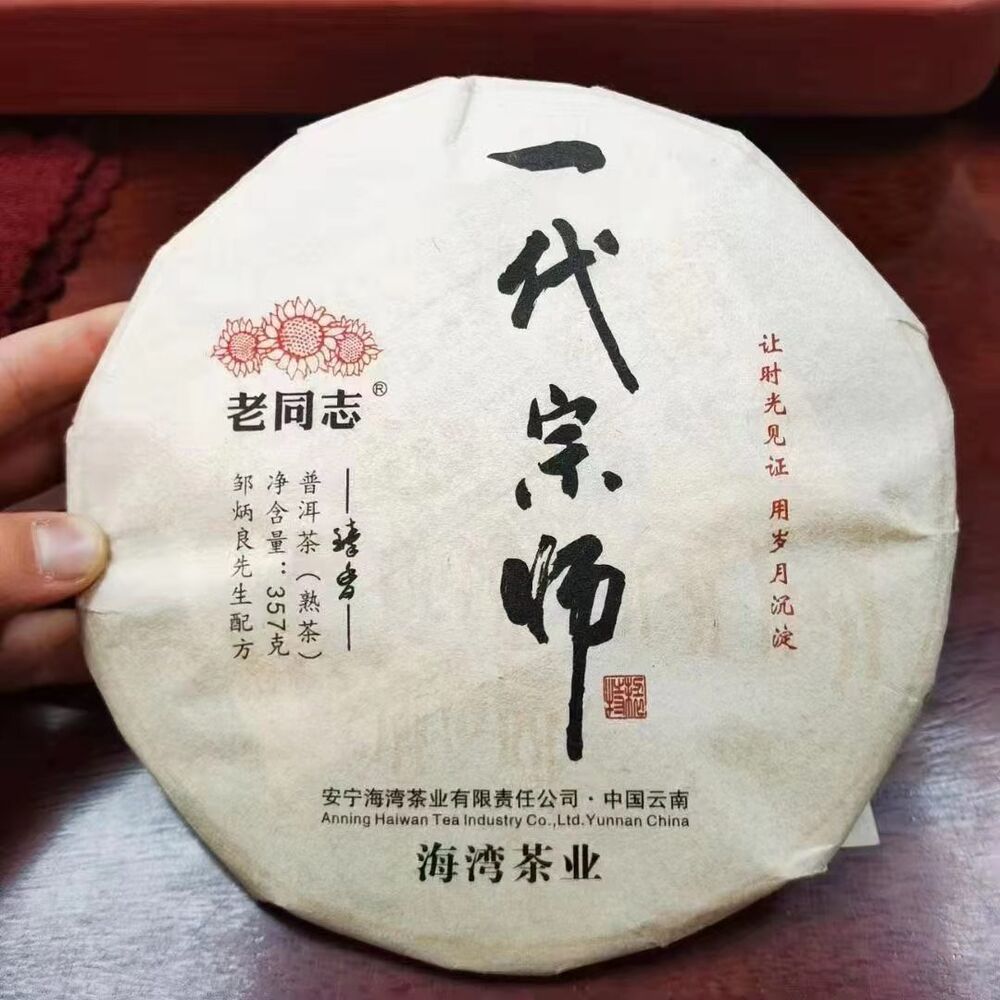 一代宗师
让时光见证 用岁月沉淀
老同志®
臻香
普洱茶(熟茶)
净含量:357克
邹炳良先生配方
安宁海湾茶业有限责任公司·中国云南
Anning Haiwan Tea Industry Co.,Ltd.Yunnan China
海湾茶业